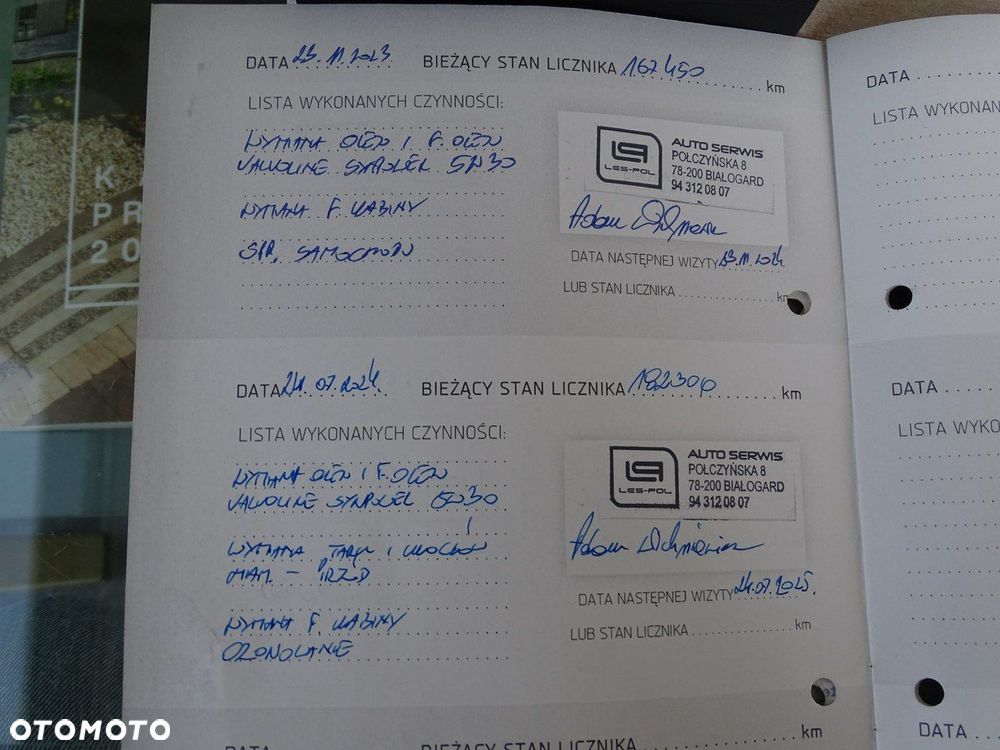 K
PR
20
DATA 23.11.2023 BIEŻĄCY STAN LICZNIKA 167450 km
LISTA WYKONANYCH CZYNNOŚCI:
WYMIANA OLEJU I F. OLEJU
VALVOLINE SYNPOWER 5W30
WYMIANA F. KABINY
SPR. SAMOCHODU
LES-POL
AUTO SERWIS
POŁCZYŃSKA 8
78-200 BIAŁOGARD
94 312 08 07
Adam
DATA NASTĘPNEJ WIZYTY 23.11.2024
LUB STAN LICZNIKA km
DATA 24.07.2024. BIEŻĄCY STAN LICZNIKA 182300 km
LISTA WYKONANYCH CZYNNOŚCI:
WYMIANA OLEJU I F. OLEJU
VALVOLINE SYNPOWER 5W30
WYMIANA TARCZ I KLOCKÓW
HAM. - PRZÓD
WYMIANA F. KABINY
OZONOWANIE
LES-POL
AUTO SERWIS
POŁCZYŃSKA 8
78-200 BIAŁOGARD
94 312 08 07
Adam
DATA NASTĘPNEJ WIZYTY 24.07.2025.
LUB STAN LICZNIKA km
DATA BIEŻĄCY STAN LICZNIKA km
DATA
LISTA WYKONAN
DATA
LISTA WYKO
DATA
OTOMOTO